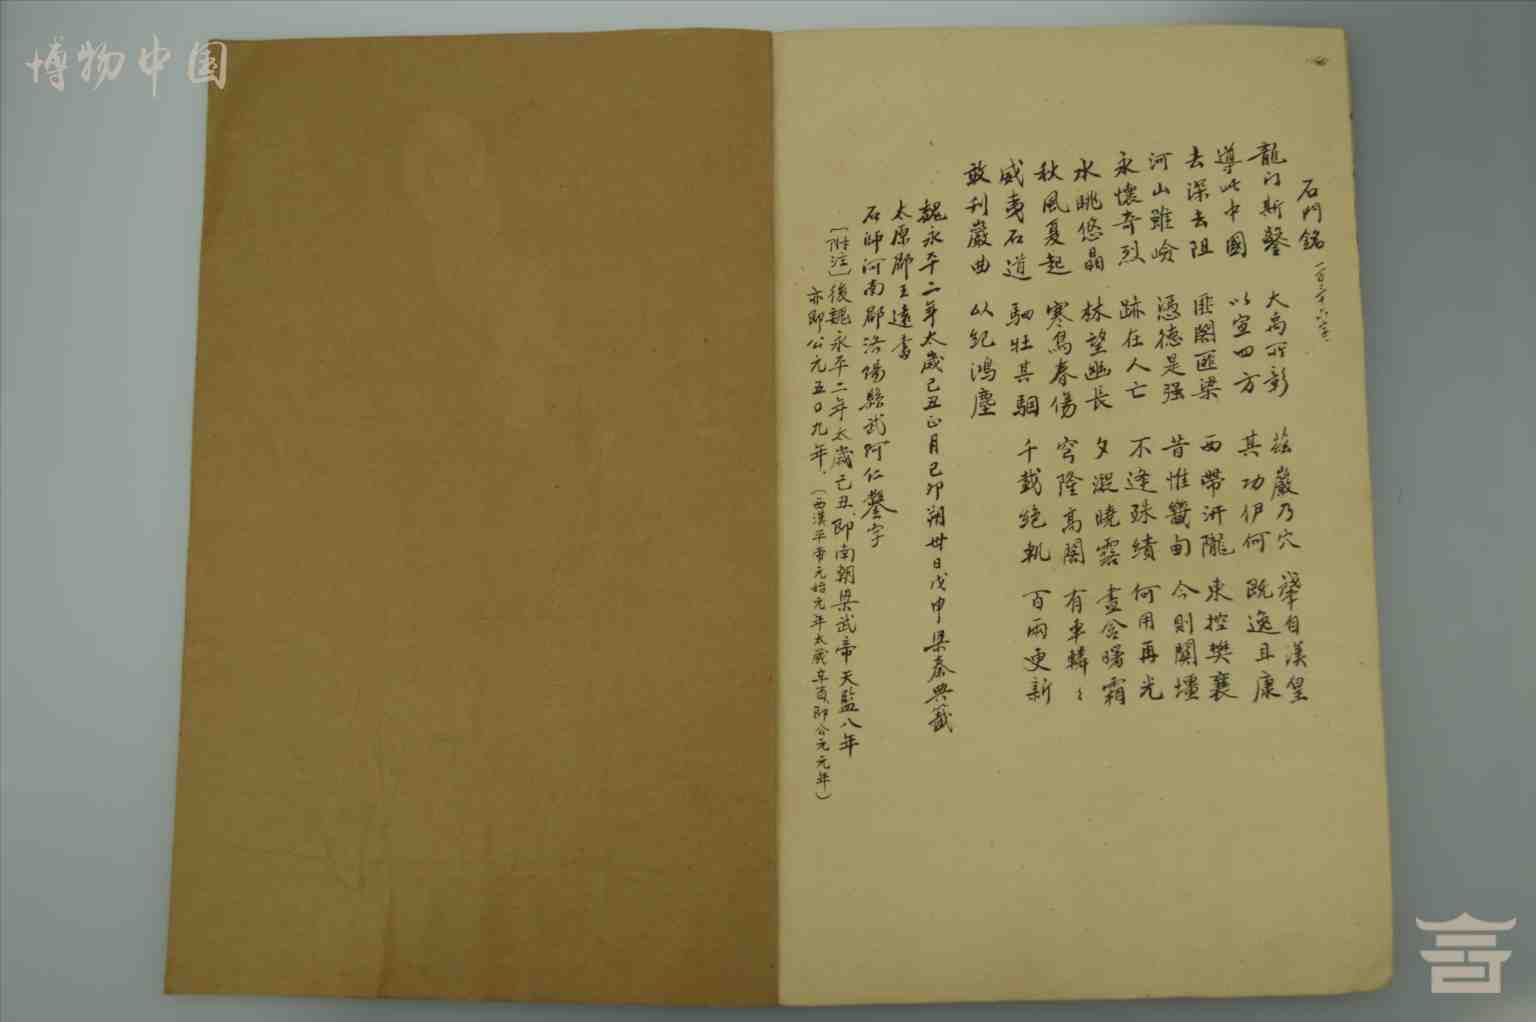 博物中国
石門銘 一百三十六字
龍門斯鑿 大禹所彰 茲巖乃穴 肇自漢皇
導此中國 以宣四方 其功伊何 既逸且康
去深去阻 匪閣匪梁 西帶汧隴 東控樊襄
河山雖嶮 憑德是强 昔惟畿甸 今則關壃
永懷奇烈 跡在人亡 不逢殊績 何用再光
水眺悠晶 林望幽長 夕凝曉露 晝含曙霜
秋風夏起 寒鳥春傷 穹隆高閣 有車轔〻
威夷石道 駟牡其駰 千載絶軌 百兩更新
敢刊巖曲 以紀鴻塵
魏永平二年太歲己丑正月己卯朔卅日戊申梁秦典籤
太原郡王遠書
石師河南郡洛陽縣武阿仁鑿字
〔附注〕後魏永平二年太歲己丑、即南朝梁武帝天監八年
亦即公元五〇九年．（西漢平帝元始元年太歲辛酉即公元元年）